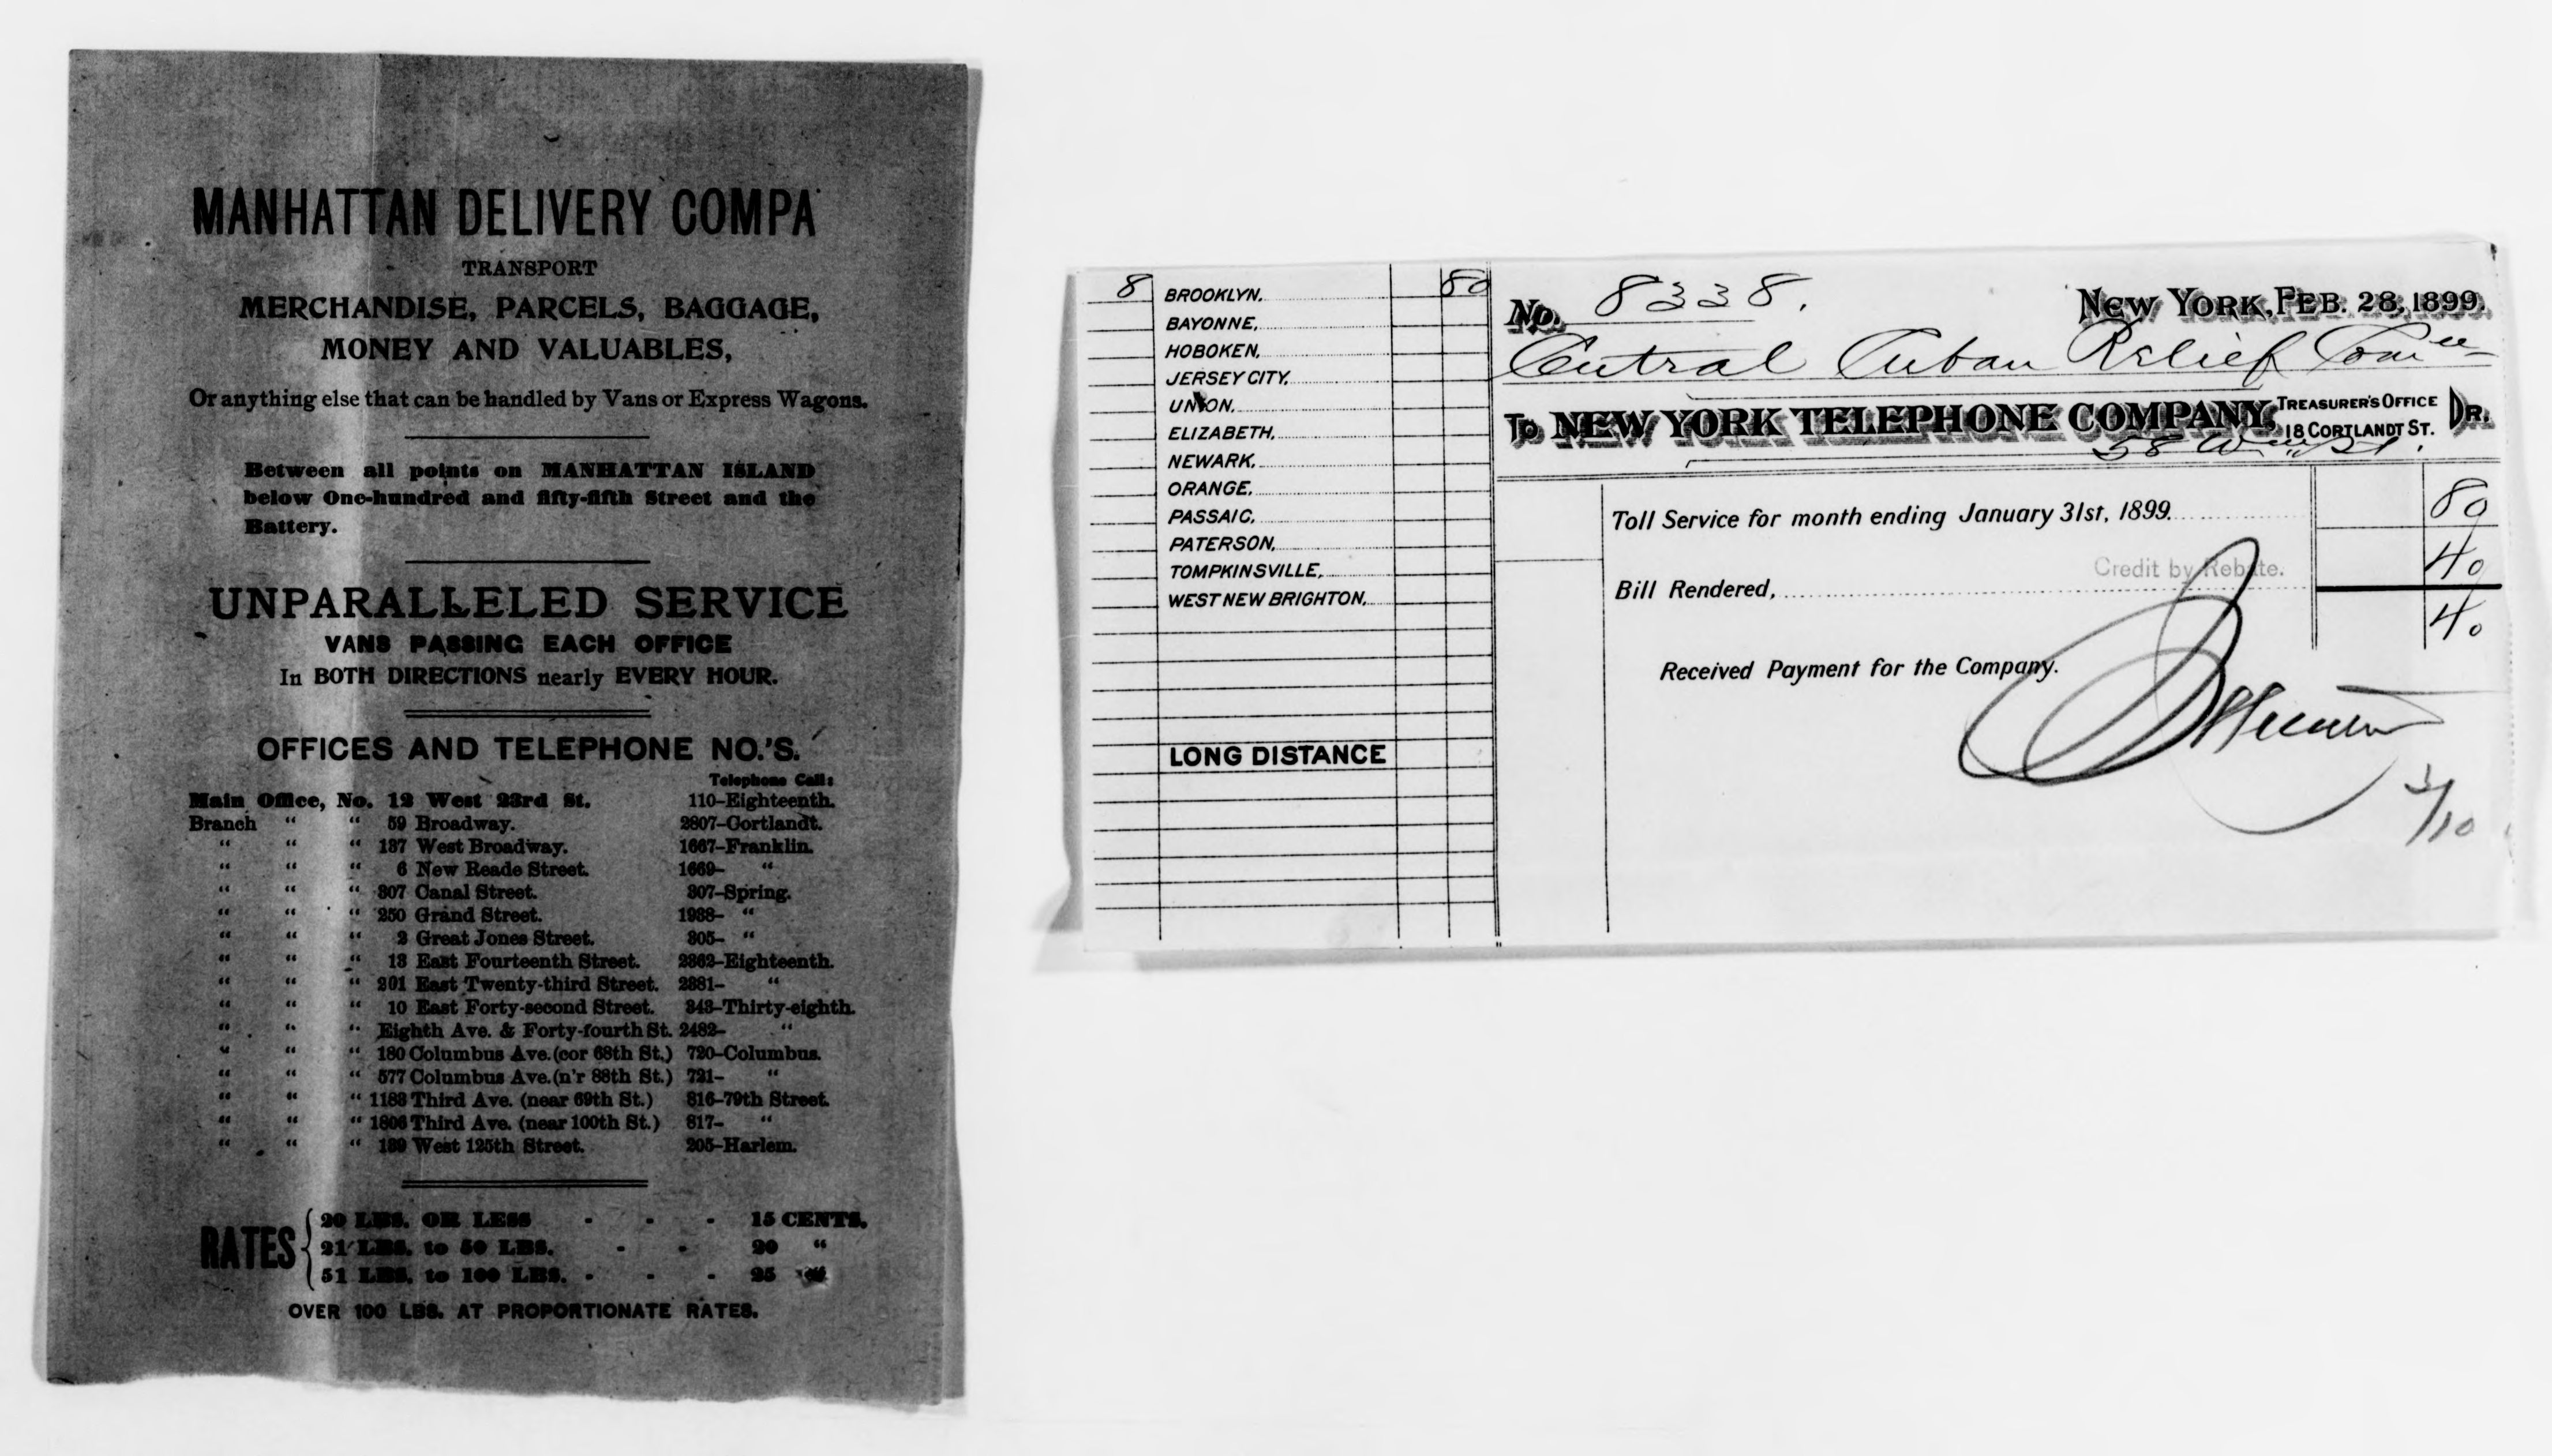 MANHATTAN DELIVERY COMPA
TRANSPORT
MERCHANDISE, PARCELS, BAGGAGE,
MONEY AND VALUABLES,
Or anything else that can be handled by Vans or Express Wagons.
Between all points on MANHATTAN ISLAND
below One-hundred and fifty-fifth Street and the
Battery.
UNPARALLELED SERVICE
VANS PASSING EACH OFFICE
In BOTH DIRECTIONS nearly EVERY HOUR.
OFFICES AND TELEPHONE NO.'S.
Telephone Call:
Main Office, No. 12 West 23rd St. 110-Eighteenth.
Branch “ “ 59 Broadway. 2807-Cortlandt.
“ “ “ 137 West Broadway. 1667-Franklin.
“ “ “ 6 New Reade Street. 1669- “
“ “ “ 307 Canal Street. 307-Spring.
“ “ “ 250 Grand Street. 1938- “
“ “ “ 2 Great Jones Street. 305- “
“ “ “ 13 East Fourteenth Street. 2362-Eighteenth.
“ “ “ 201 East Twenty-third Street. 2381- “
“ “ “ 10 East Forty-second Street. 343-Thirty-eighth.
“ “ “ Eighth Ave. & Forty-fourth St. 2482- “
“ “ “ 180 Columbus Ave. (cor 68th St.) 720-Columbus.
“ “ “ 577 Columbus Ave. (n'r 88th St.) 721- “
“ “ “ 1183 Third Ave. (near 69th St.) 816-79th Street.
“ “ “ 1806 Third Ave. (near 100th St.) 817- “
“ “ “ 139 West 125th Street. 205-Harlem.
RATES
20 LBS. OR LESS - - - 15 CENTS.
21 LBS. to 50 LBS. - - 20 “
51 LBS. to 100 LBS. - - - 25 “
OVER 100 LBS. AT PROPORTIONATE RATES.
8 BROOKLYN, 80
BAYONNE,
HOBOKEN,
JERSEY CITY,
UNION,
ELIZABETH,
NEWARK,
ORANGE,
PASSAIC,
PATERSON,
TOMPKINSVILLE,
WEST NEW BRIGHTON,
LONG DISTANCE
No. 8338. NEW YORK, FEB. 28, 1899.
Central Cuban Relief Comee
To NEW YORK TELEPHONE COMPANY, TREASURER'S OFFICE 18 CORTLANDT ST. DR.
58 Wm St.
Toll Service for month ending January 31st, 1899. 80
Credit by Rebate. 40
Bill Rendered, 40
Received Payment for the Company.
3/10